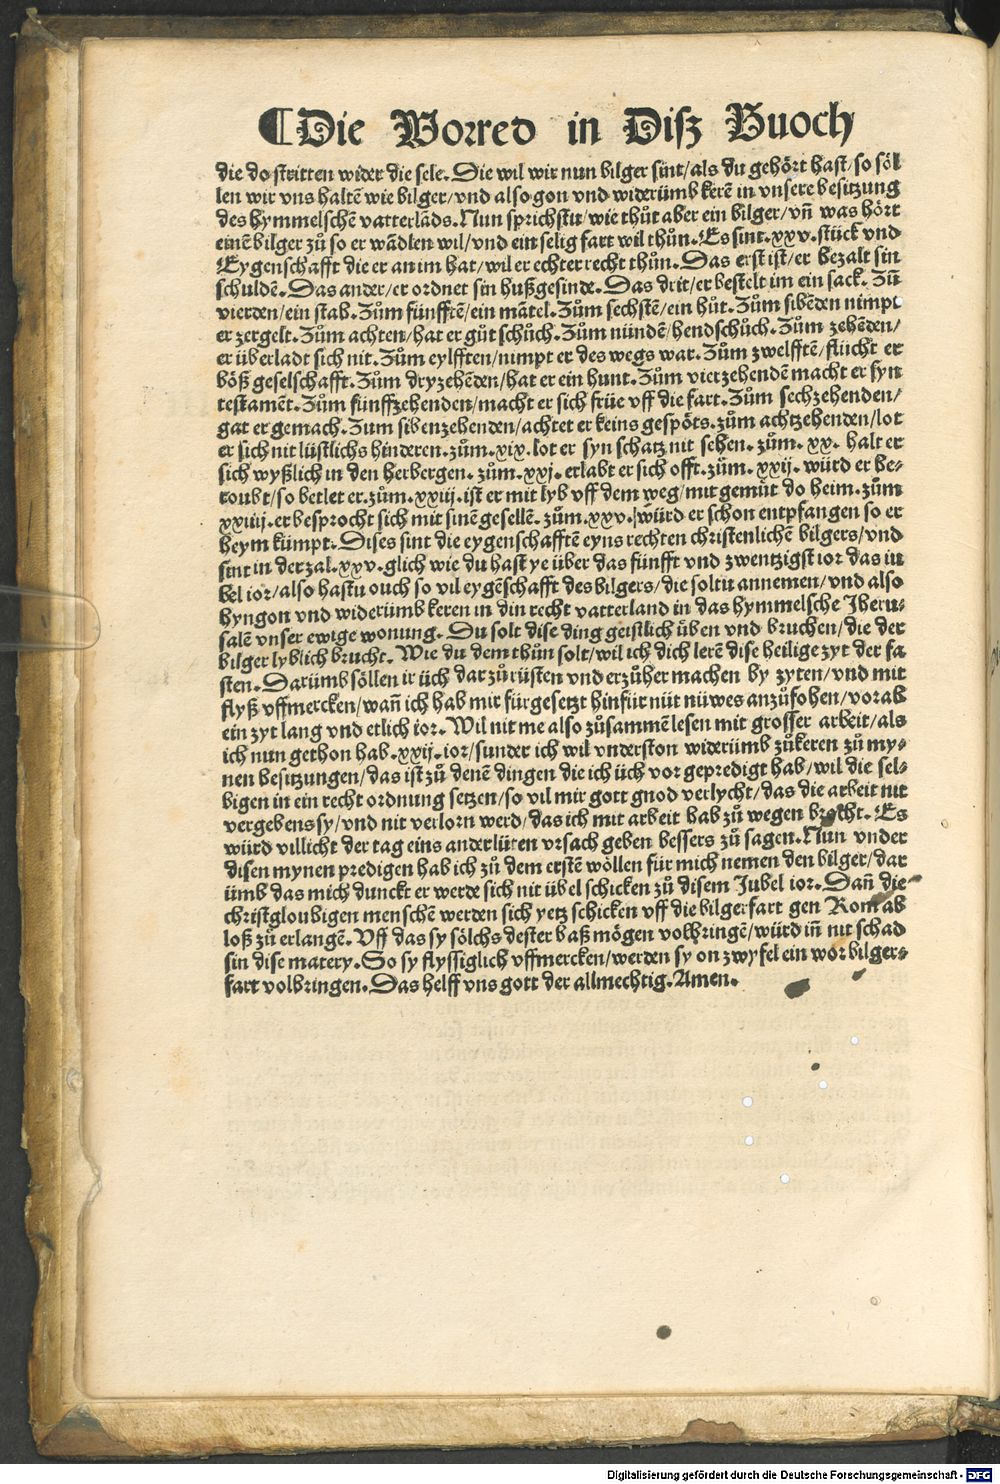 ¶Die Vorred in Disz Buoch
die do stritten wider die sele. Die wil wir nun bilger sint/als du gehört hast/so söl
len wir vns haltē wie bilger/vnd also gon vnd widerümb kerē in vnsere besitzung
des hymmelschē vatterlāds. Nun sprichstu/wie thůt aber ein bilger/vn̄ was hört
einē bilger zů so er wādlen wil/vnd ein selig fart wil thůn. Es sint .xxv. stück vnd
Eygenschafft die er an im hat/wil er echter recht thůn. Das erst ist/er bezalt sin
schuldē. Das ander/er ordnet sin hußgesinde. Das drit/er bestelt im ein sack. Zů
vierden/ein stab. Zům fünfftē/ein mātel. Zům sechstē/ein hůt. Zům sibēden nimpt
er zergelt. Zům achten/hat er gůt schůch. Zům nündē/hendschůch. Zům zehēden/
er überladt sich nit. Zům eylfften/nimpt er des wegs war. Zům zwelfftē/flücht er
böß geselschafft. Zům dryzehēden/hat er ein hunt. Zům vierzehendē macht er syn
testamēt. Zům fünffzehenden/macht er sich früe vff die fart. Zům sechzehenden/
gat er gemach. Zum sibenzehenden/achtet er keins gespöts. zům achtzehenden/lot
er sich nit lüstlichs hinderen. zům. xix. lot er syn schatz nit sehen. zům. xx. halt er
sich wyßlich in den herbergen. zům. xxj. erlabt er sich offt. zům. xxij. würd er be⸗
roubt/so betlet er. zům. xxiij. ist er mit lyb vff dem weg/mit gemüt do heim. zům
xxiiij. er besprocht sich mit sinē gesellē. zům. xxv. würd er schon entpfangen so er
heym kümpt. Dises sint die eygenschafftē eyns rechten christenlichē bilgers/vnd
sint in der zal. xxv. glich wie du hast ye über das fünfft vnd zwentzigst ior das iu
bel ior/also hastu ouch so vil eygēschafft des bilgers/die soltu annemen/vnd also
hyngon vnd widerümb keren in din recht vatterland in das hymmelsche Jheru⸗
salē vnser ewige wonung. Du solt dise ding geistlich üben vnd bruchen/die der
bilger lyblich brucht. Wie du dem thůn solt/wil ich dich lerē dise heilige zyt der fa
sten. Darümb söllen ir üch dar zů rüsten vnd erzůher machen by zyten/vnd mit
flyß vffmercken/wan̄ ich hab mir fürgesetzt hinfür nüt nüwes anzůfohen/vorab
ein zyt lang vnd etlich ior. Wil nit me also zůsammē lesen mit grosser arbeit/als
ich nun gethon hab. xxij. ior/sunder ich wil vnderston widerümb zůkeren zů my⸗
nen besitzungen/das ist zů denē dingen die ich üch vor gepredigt hab/wil die sel⸗
bigen in ein recht ordnung setzen/so vil mir gott gnod verlycht/das die arbeit nit
vergebens sy/vnd nit verlorn werd/das ich mit arbeit hab zů wegen brocht. Es
würd villicht der tag eins anderlüten vrsach geben bessers zů sagen. Nun vnder
disen mynen predigen hab ich zů dem erstē wöllen für mich nemen den bilger/dar
ümb das mich dunckt er werde sich nit übel schicken zů disem Jubel ior. Dan̄ die
christgloubigen menschē werden sich yetz schicken vff die bilgerfart gen Rom ab
loß zů erlangē. Vff das sy sölchs dester baß mögen volbringē/würd in̄ nit schad
sin dise matery. So sy flyssiglich vffmercken/werden sy on zwyfel ein wor bilger⸗
fart volbringen. Das helff vns gott der allmechtig. Amen.
Digitalisierung gefördert durch die Deutsche Forschungsgemeinschaft - DFG